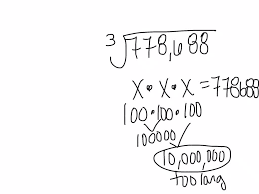 3√778,688
x • x • x = 778688
100 • 100 • 100
100000
10,000,000
too long